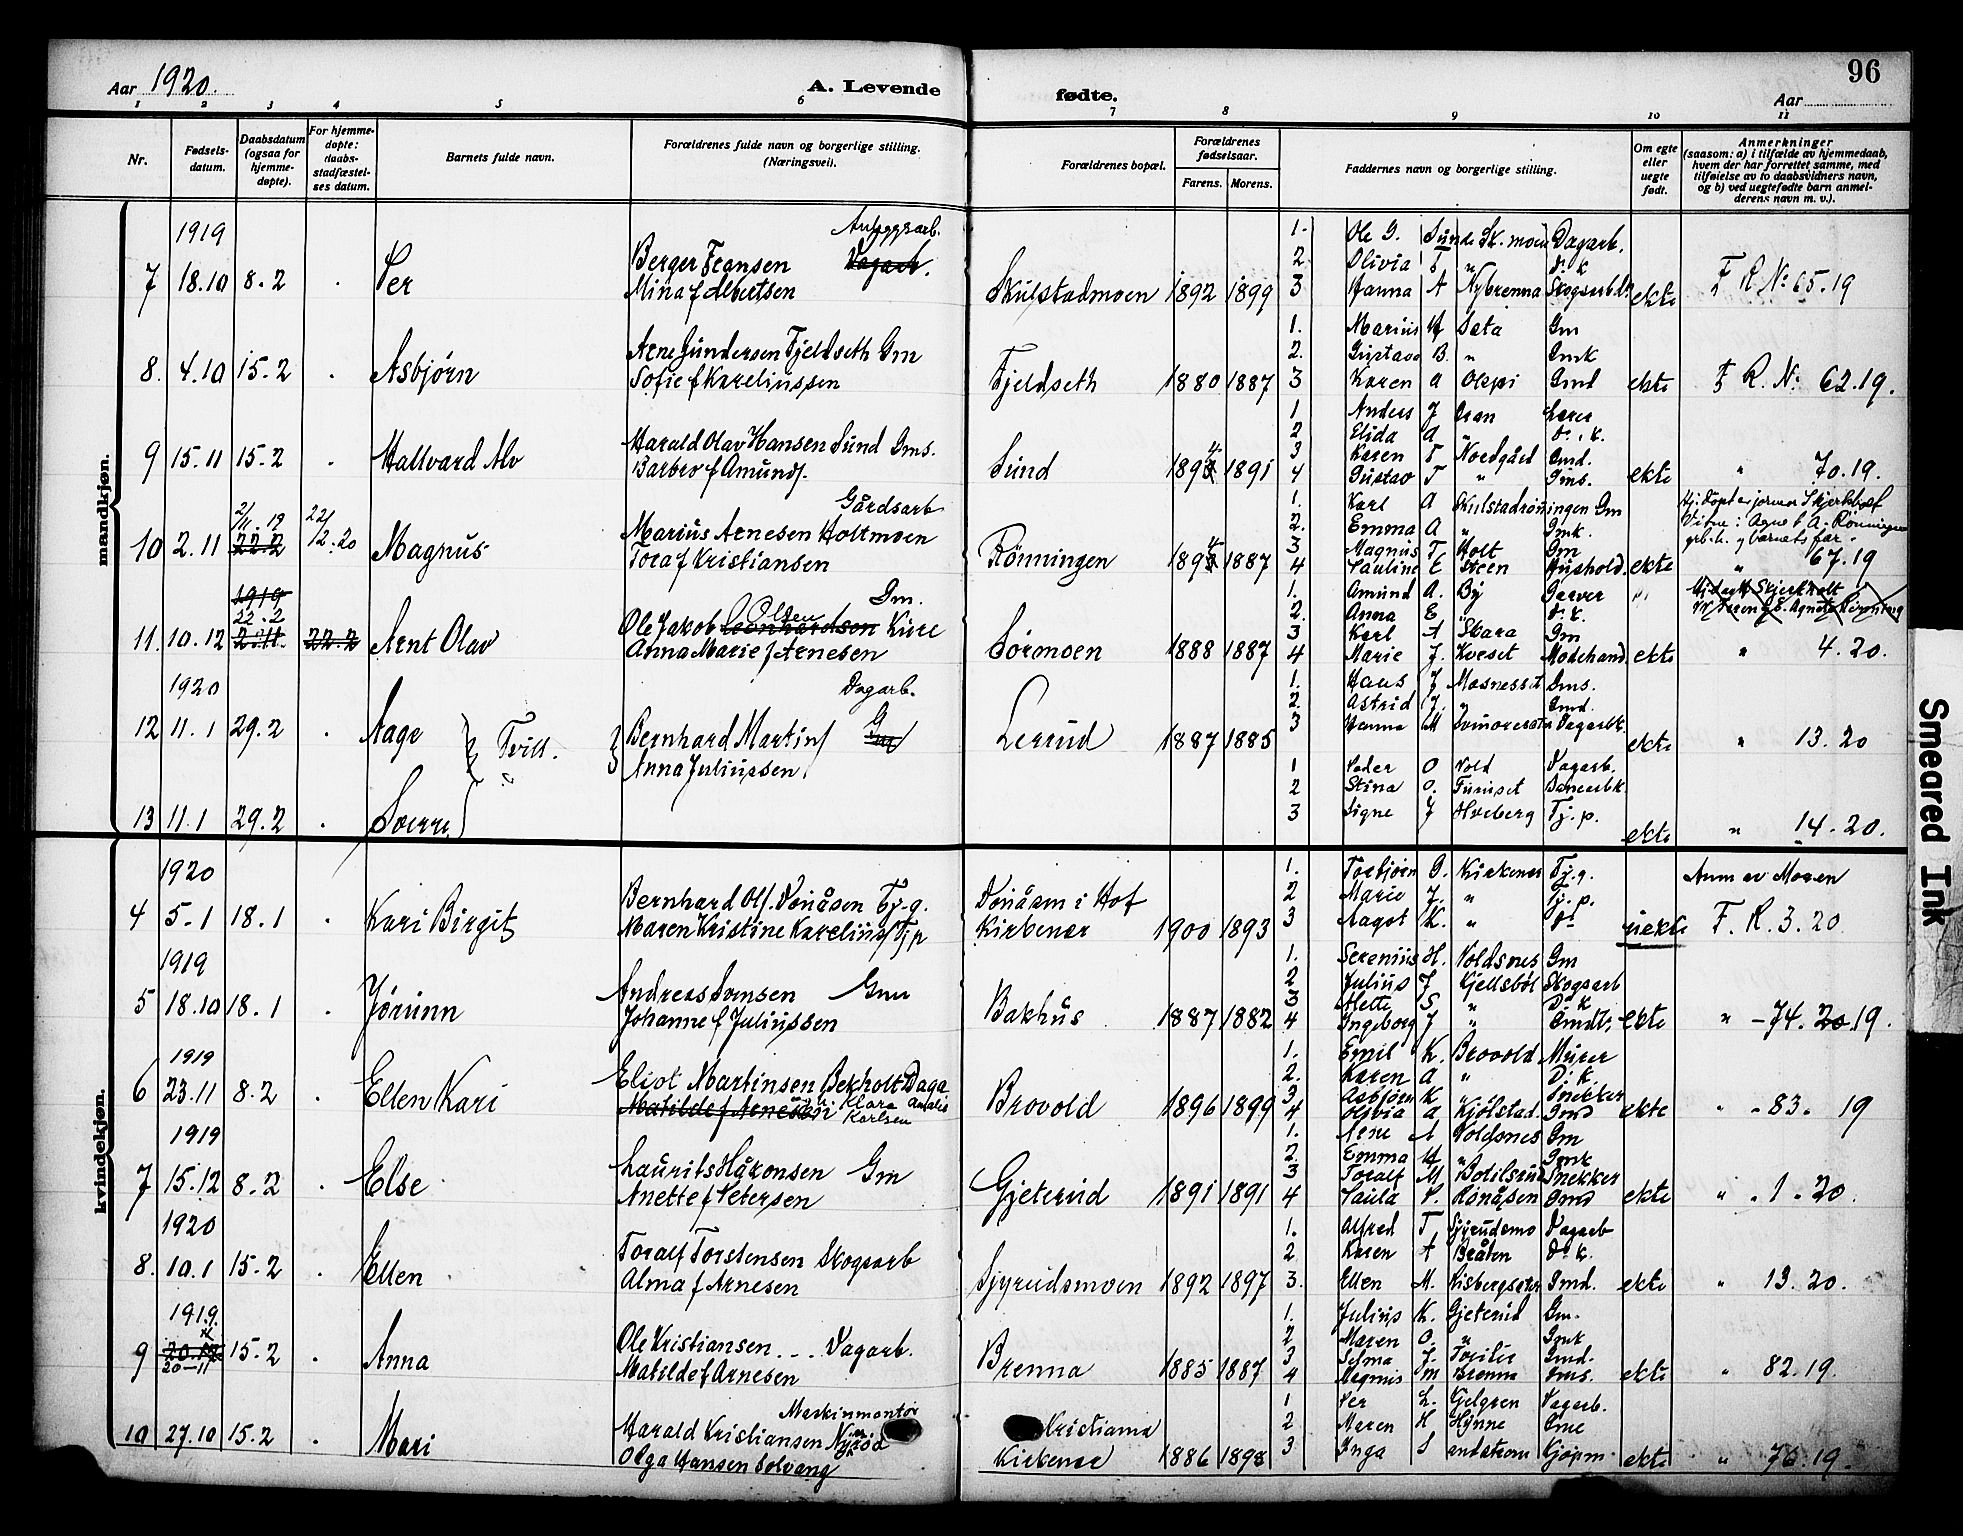 Aar 1920.
A. Levende
fødte.
96
Aar
1 2 3 4 5 6 7 8 9 10 11
Nr.
Fødsels-
datum.
Daabsdatum
(ogsaa for
hjemme-
døpte).
For hjemme-
døpte:
daabs-
stadfæstel-
ses datum.
Barnets fulde navn.
Forældrenes fulde navn og borgerlige stilling.
(Næringsvei).
Forældrenes bopæl.
Forældrenes
fødselsaar.
Farens. Morens.
Faddernes navn og borgerlige stilling.
Om egte
eller
uegte
født.
Anmerkninger
(saasom: a) i tilfælde av hjemmedaab,
hvem der har forrettet samme, med
tilføielse av to daabsvidners navn,
og b) ved uegtefødte barn anmel-
derens navn m. v.).
mandkjøn.
1919
Anleggsarb.
7 18.10 8.2 Per
Berger Fransen Dagarb.
Mina f Albertsen
Skulstadmoen 1892 1899
1. Ole G. Sunde Sk.moen Dagarb.
2. Olivia T " d: k
3 Hanna A Nybrenna Skogsarb.
ekte F R No 65.19
8. 4.10 15.2 Asbjørn
Arne Gundersen Fjeldseth Gm
Sofie f Kareliussen
Fjeldseth 1880 1887
1. Marius H Sæta Gm
2. Gustava B. " Gmk
3 Karen A Oleppi Gmd
ekte F R. No 62.19.
9 15.11 15.2 Hallvard Alv
Harald Olav Hansen Sund Gms.
Barbro f Amunds.
Sund 1894 1891
1 Anders J Gran Lærer
2 Elida A " d: k.
3 Karen T Nordgård Gmd.
4 Gustav T " Gms.
ekte " 70.19.
Gårdsarb
10 2.11 2/11.19 22.2 22/12.20 Magnus
Marius Arnesen Holtmoen
Tora f Kristiansen
Rønningen 1894 1887
1. Karl A Skulstadrøningen Gm
2. Emma A " Gmk.
3. Magnus T. Holt Gm
4 Pauline E Steen Hushold.
ekte " 67.19
1919
22.2
11. 10.12 2.11. 22.2 Arnt Olav
Gm.
Ole Jakob Leonhardsen Olsen Kure
Anna Marie f Arnesen
Sørmoen 1888 1887
1. Amund A. By Garver
2. Anna E. " d: k.
3 Karl A Skara Gm
4 Marie J. Kveset Modehand.
ekte " 4.20.
1920
Dagarb.
12 11.1 29.2 Aage Tvill.
Bernhard Martins Gm
Anna Juliussen
Lerud 1887 1885
1. Hans J Mosnesset Gms.
2. Astrid J. " Gmd.
3 Hanna M Dagarbk.
ekte " 13.20
13 11.1 29.2 Sverre "
1 Peder O Vold Dagarb.
2 Stina O. Furuset Banearbk.
3 Signe J Hveberg Tj. p.
ekte " 14.20.
kvindekjøn.
1920
4 5.1 18.1 Kari Birgit
Bernhard Ols. Dønåsen Tj. g.
Maren Kristine Karelius Tj p
Dønåsen i Hof
Kirkenær 1900 1893
1. Torbjørn G. Kirkenær Tj. g.
2 Marie J. " Tj. p.
3 Aagot K. " do
uekte
Anm av Moren
F. R. 3. 20
1919
5 18.10 18.1 Jørunn
Andreas Tomsen Gm
Johanne f Juliussen
Bakhus 1887 1882
1. Serenius H. Voldsnes Gm
2 Julius J Kjellsbøl Skogsarb
3 Alette S " D: k
4 Ingeborg J " Gmdt.
ekte " - 74. 20 19.
1919
6 23.11 8.2 Ellen Kari
Eliot Martinsen Bekholt Daga
Matilde f Arnesen Klara Amalie
Karlsen
Brovold 1896 1899
1. Emil K. Brovold Murer
2. Karen A " D: k.
3 Asbjørn K " Snekker
4 Olivia A Kjølstad Gmd
ekte " . 83. 19
1919
7 15.12 8.2 Else
Laurits Håkonsen Gm
Anette f Petersen
Gjeterud 1891 1891
1. Arne A Voldsnes Gm
2. Emma H " Gmk
3 Toralf M Botilsrud Snekker
4 Paula P. Rønåsen Gmd
ekte " . 1. 20.
1920
8. 10.1 15.2 Ellen
Toralf Torstensen Skogsarb
Alma f Arnesen
Sjyrudsmoen 1892 1897
1. Alfred T. Sjyrudsmo Dagarb
2. Karen A Bråten D: k.
3. Ellen M. Risbergsæter Gmd.
ekte " 13. 20.
1919.
9 20.12 20-11 15.2 Anna
Ole Kristiansen Dagarb.
Matilde f Arnesen
Brenna 1885 1887
1. Julius K. Gjeterud Gm.
2 Maren O. " Gmk
3 Selma J. Gmd.
4 Magnus M Brenna Gms.
ekte " 82.19.
Maskinmontør
10 27.10 15.2 Mari
Harald Kristiansen
Olga Hansen Solvang
Kristiania
Kirkenær 1886 1898
1 Per L. Gjelgren Dagarb.
2. Maren H Hynne Enne
3 Inga S andstrom Kjøpm.
ekte " 76.19.
Smeared Ink